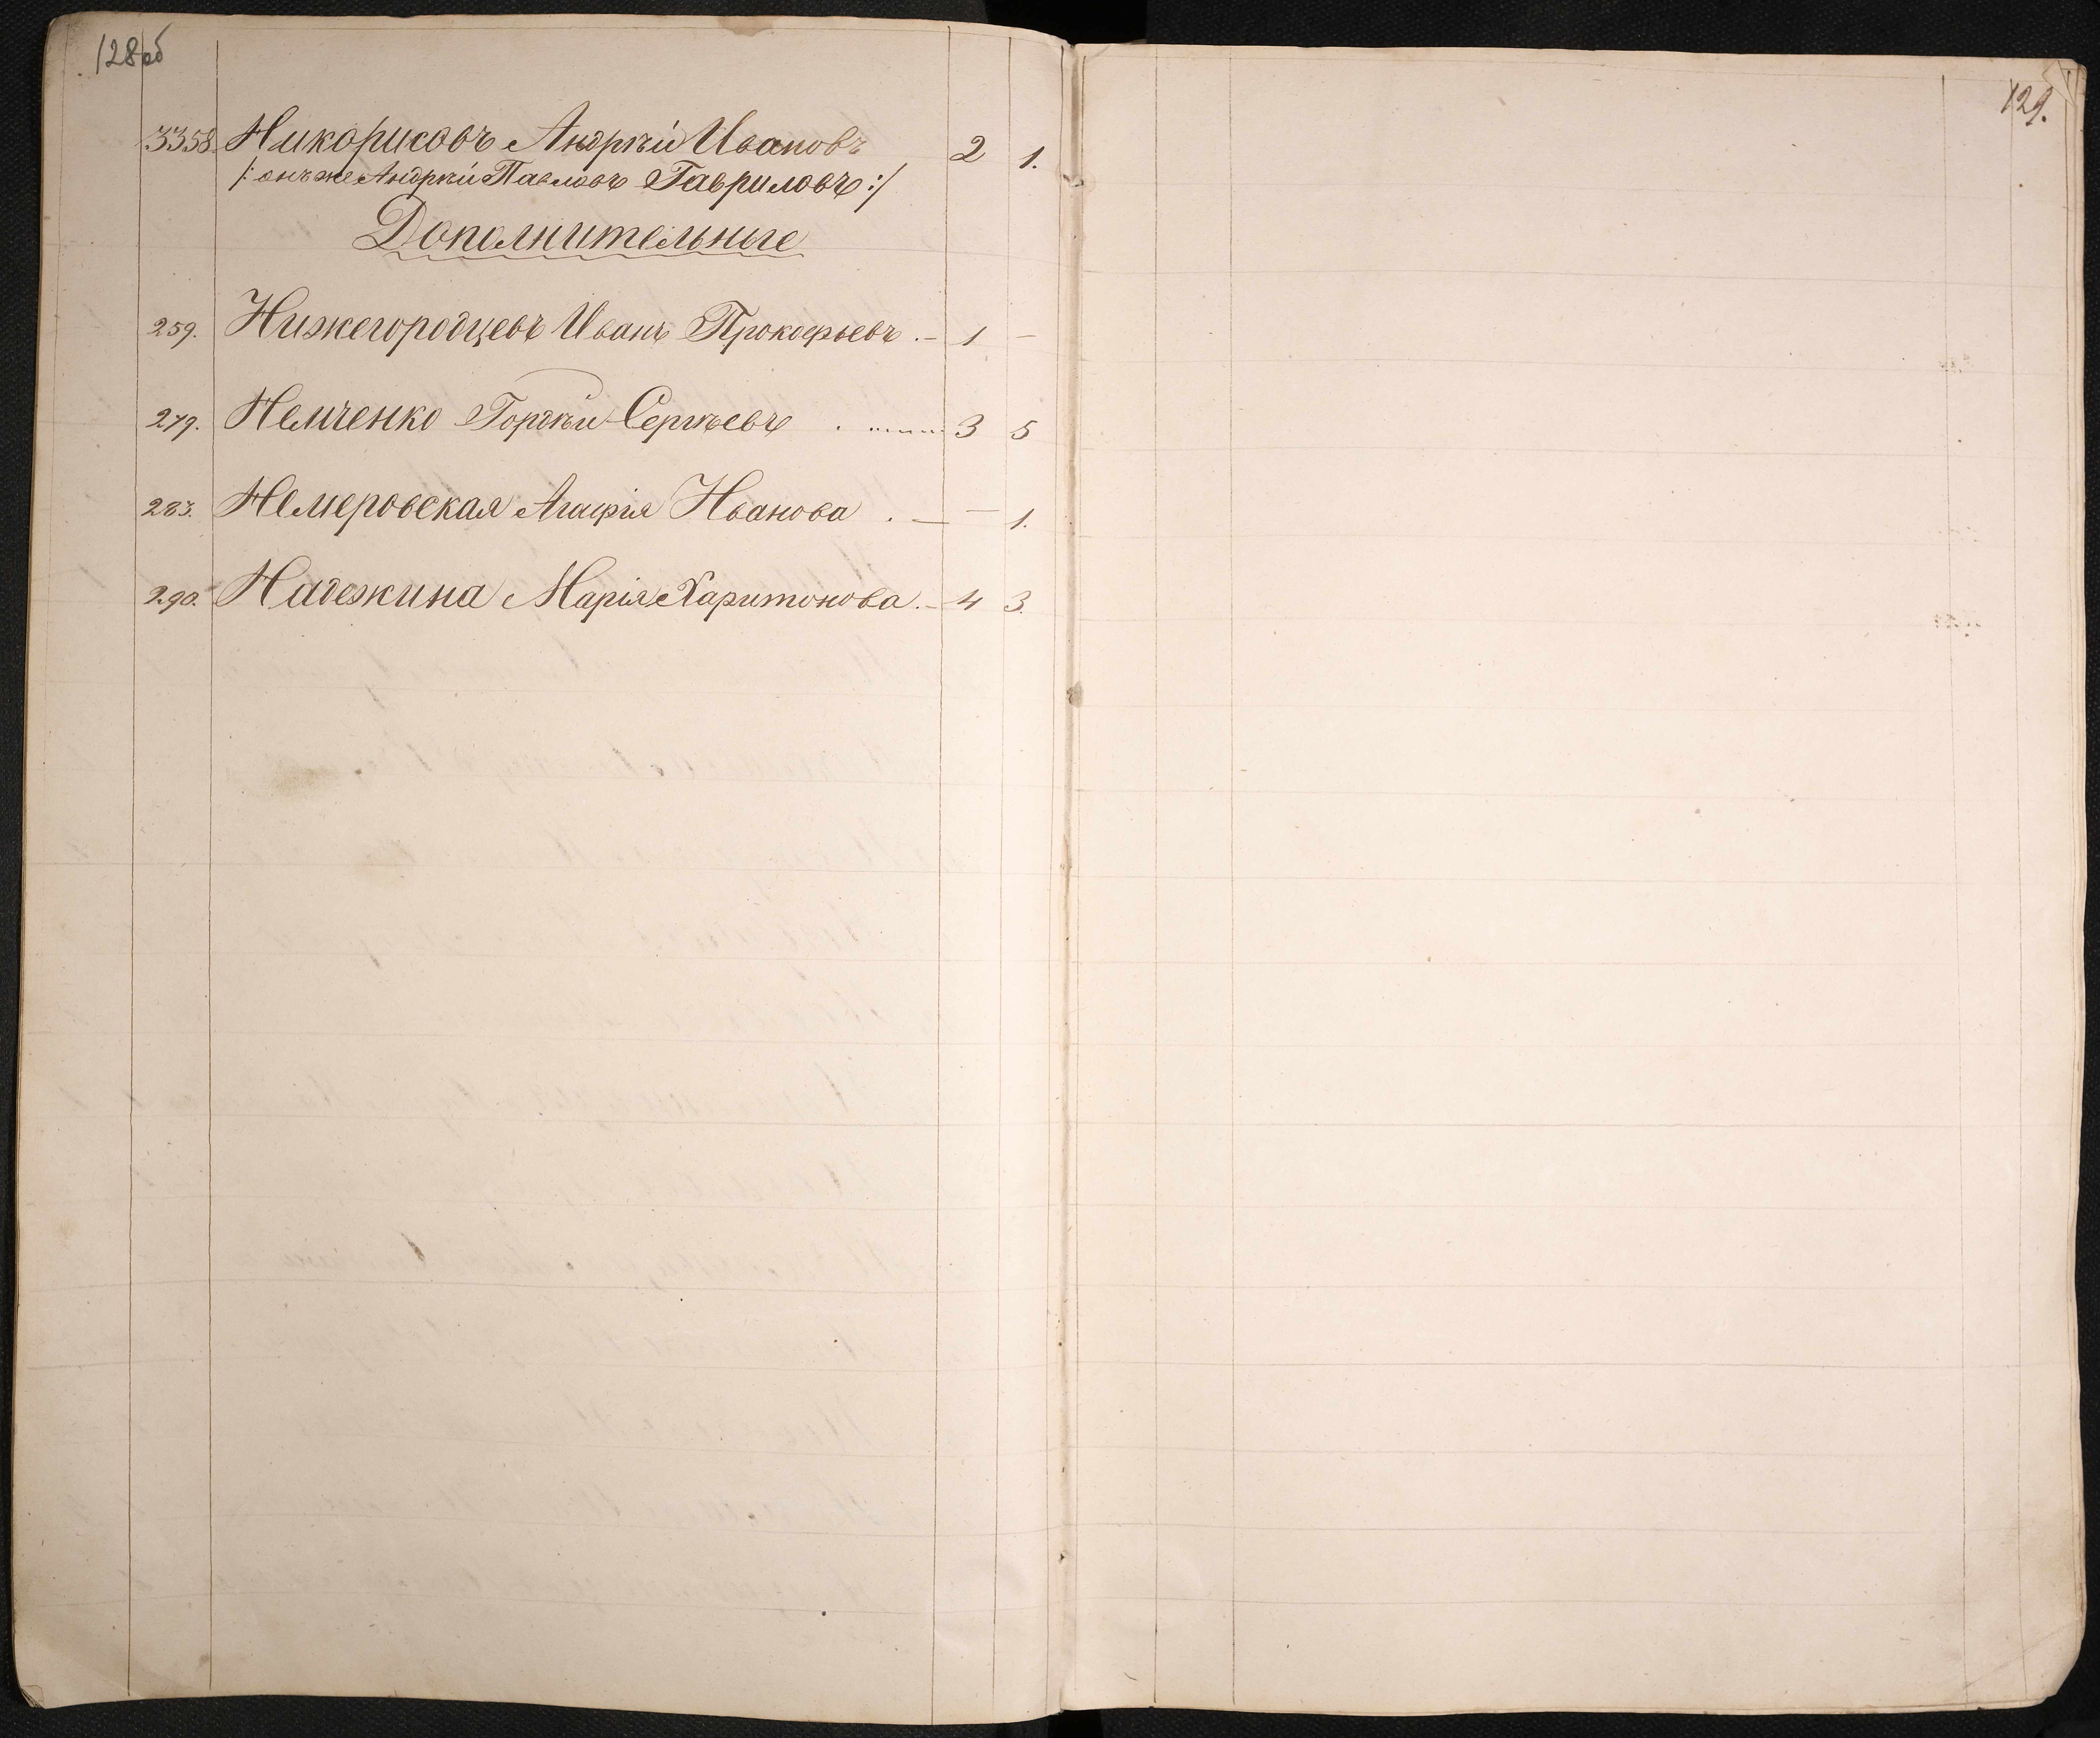 128об
3358. Никорисовъ Андрѣй Ивановъ 2 1.
/: онъ же Андрѣй Павловъ Гавриловъ :/
Дополнительные
259. Нижегородцевъ Иванъ Прокофьевъ . – 1 –
279. Немченко Гордѣй Сергѣевъ . ...... 3 5
283. Немеровская Агафія Иванова . — — 1.
290. Надежкина Марія Харитонова . – 4 3.
129.